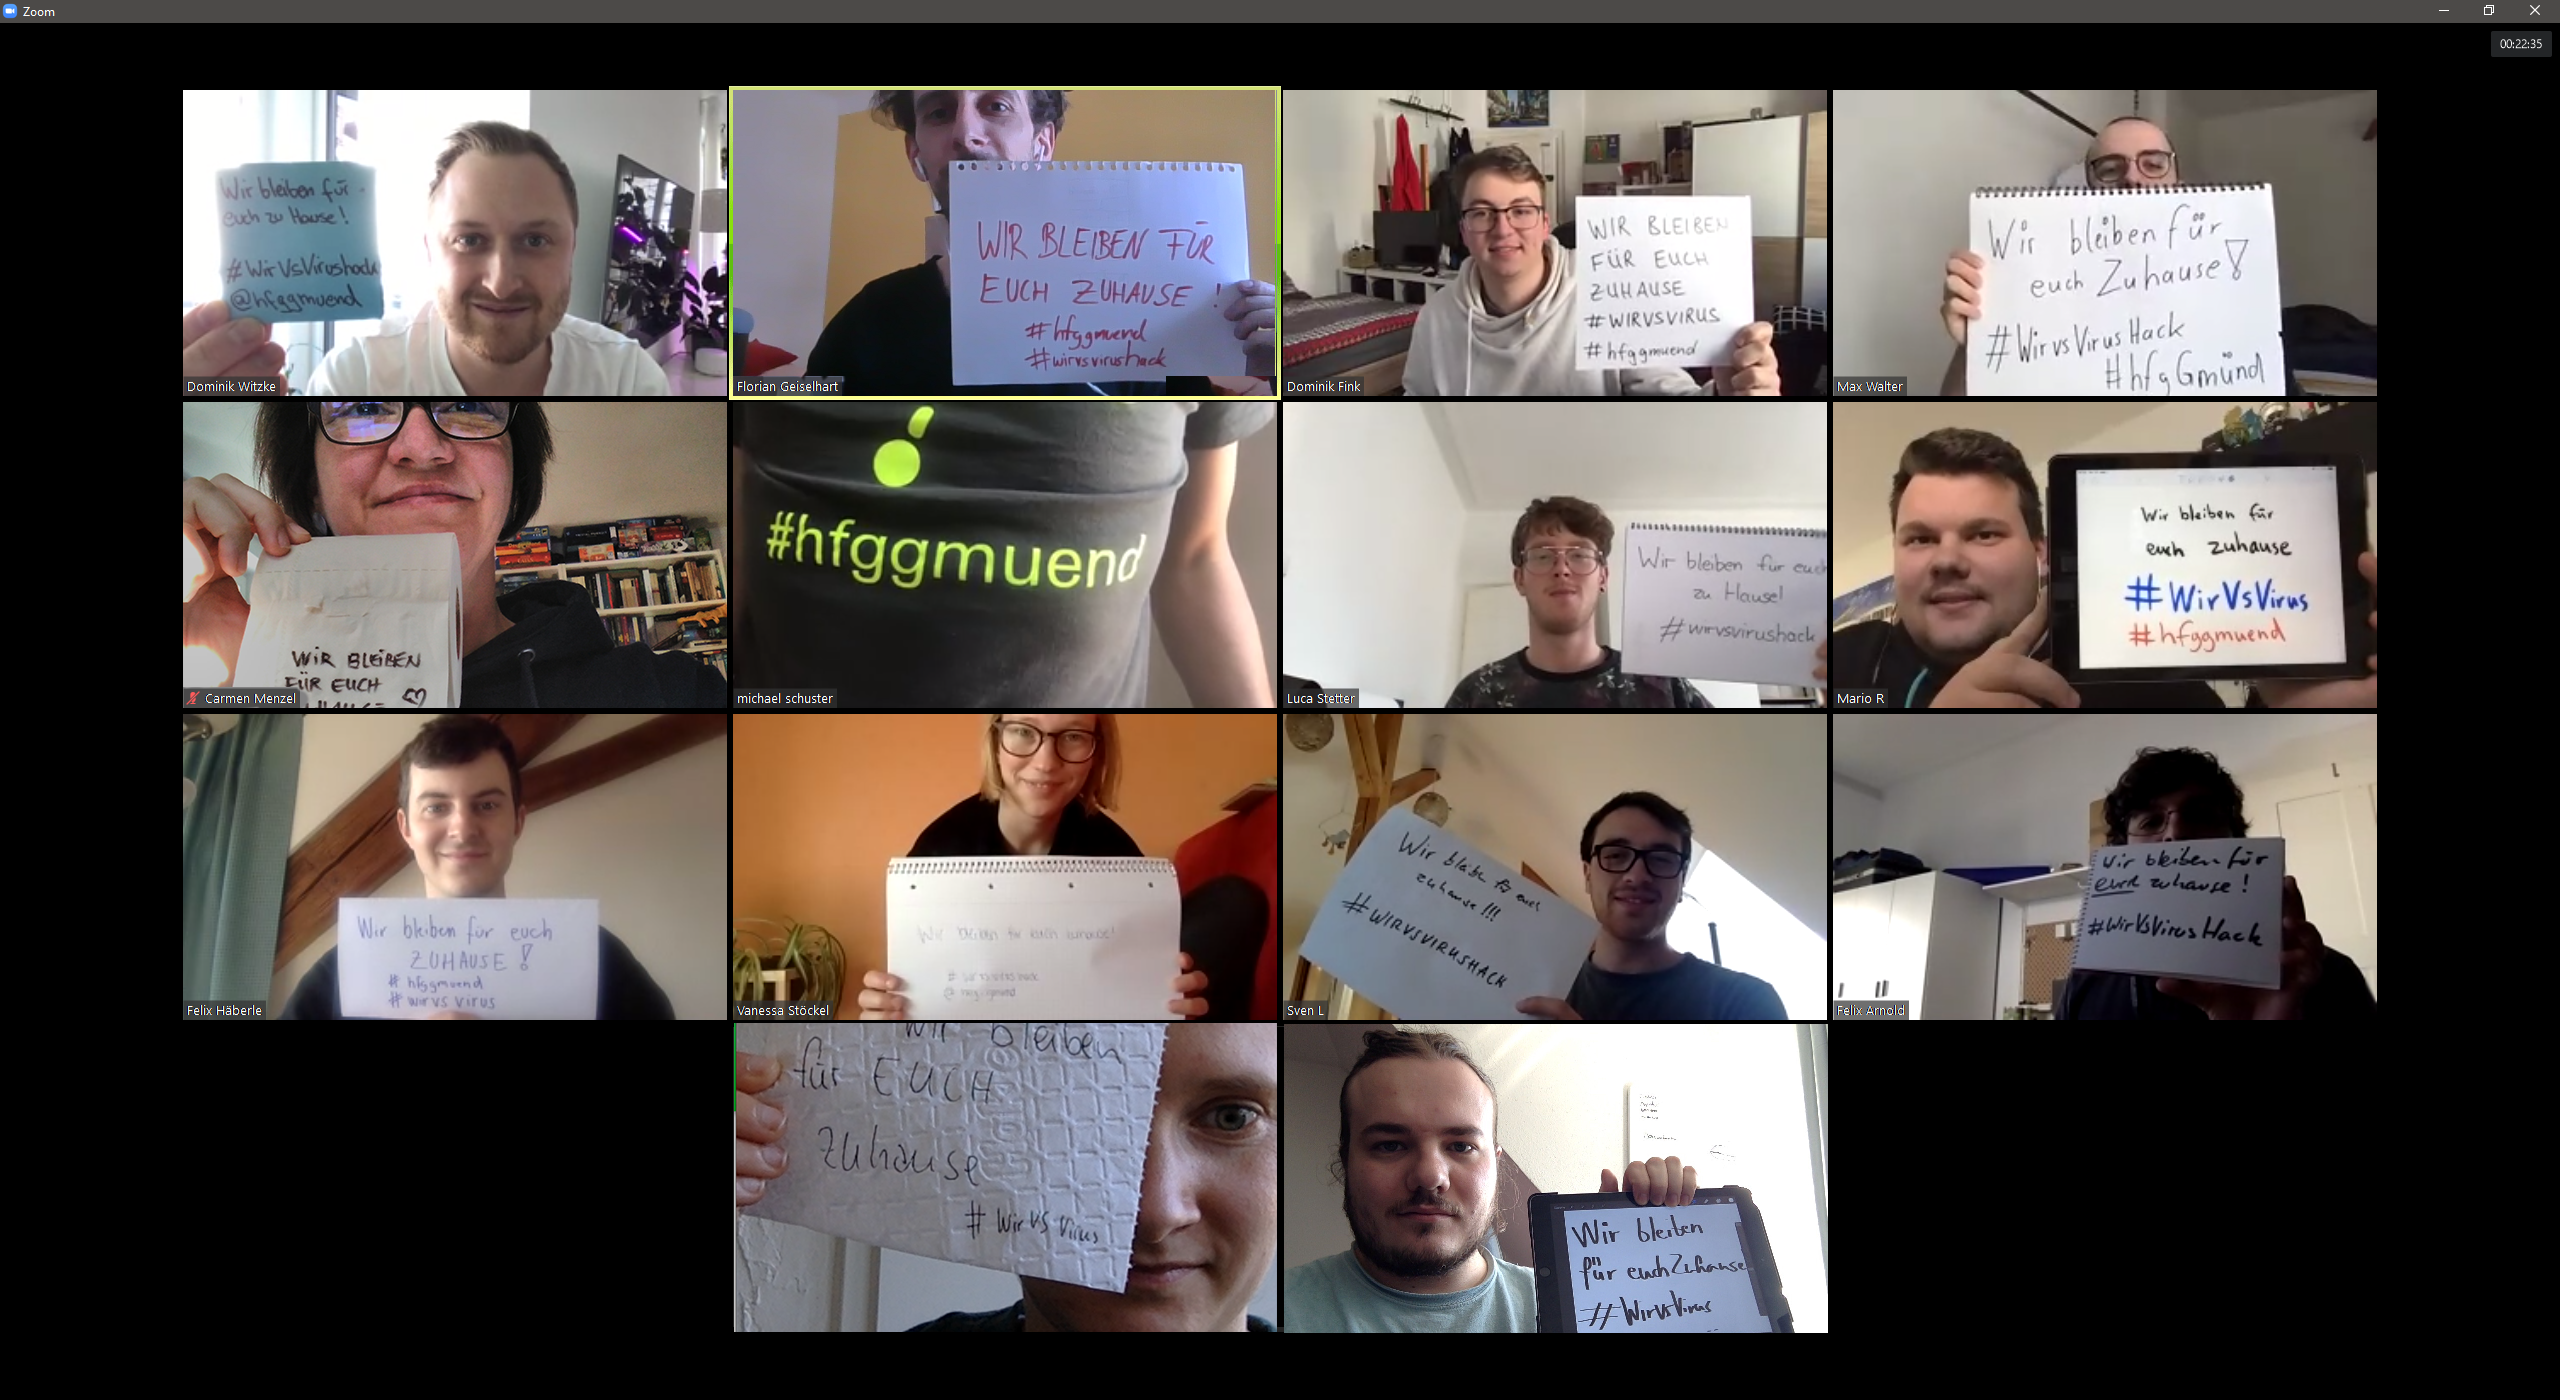 Zoom
00:22:35
Wir bleiben für
euch zu Hause!
#WirVsVirushack
@hfggmuend
Dominik Witzke
WIR BLEIBEN FÜR
EUCH ZUHAUSE !
#hfggmuend
#wirvsvirushack
Florian Geiselhart
WIR BLEIBEN
FÜR EUCH
ZUHAUSE
#WIRVSVIRUS
#hfggmuend
Dominik Fink
Wir bleiben für
euch Zuhause!
#WirvsVirusHack
#hfgGmünd
Max Walter
WIR BLEIBEN
FÜR EUCH
Carmen Menzel
#hfggmuend
michael schuster
Wir bleiben für euch
zu Hause!
#wirvsvirushack
Luca Stetter
Wir bleiben für
euch zuhause
#WirVsVirus
#hfggmuend
Mario R
Wir bleiben für euch
ZUHAUSE!
#hfggmuend
#wirvs virus
Felix Häberle
Wir bleiben für euch zuhause!
Vanessa Stöckel
Wir bleiben für euch
zuhause!!!
#WIRVSVIRUSHACK
Sven L
Wir bleiben für
euch zuhause!
#WirVsVirusHack
Felix Arnold
Wir bleiben
für EUCH
Zuhause
# Wir vs Virus
Wir bleiben
für euch Zuhause
#WirVsVirus